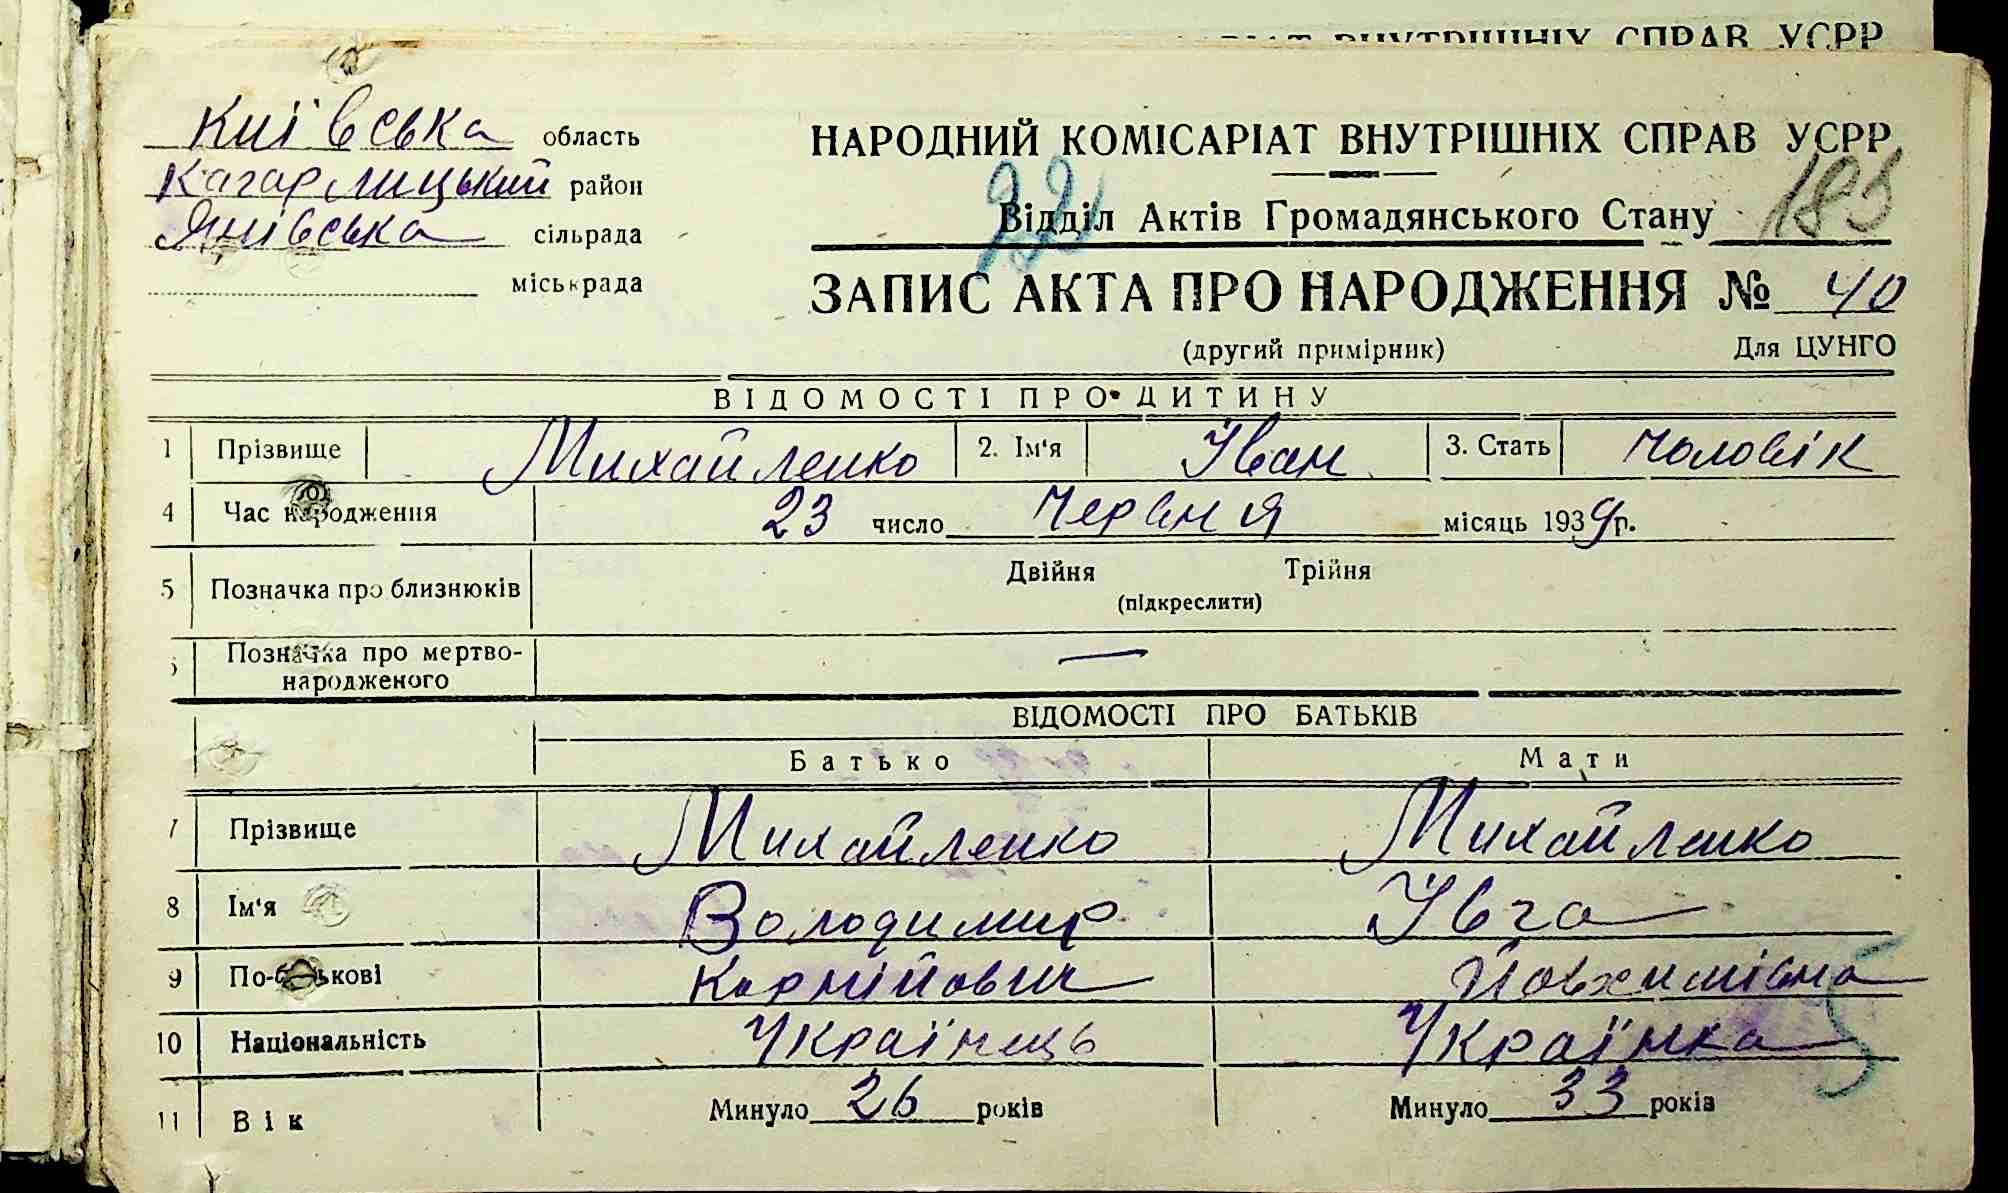 ВНУТРІШНІХ СПРАВ УСРР
Київська область
Кагарлицький район
Янівська сільрада
міськрада
НАРОДНИЙ КОМІСАРІАТ ВНУТРІШНІХ СПРАВ УСРР
Відділ Актів Громадянського Стану
ЗАПИС АКТА ПРО НАРОДЖЕННЯ № 40
(другий примірник) Для ЦУНГО
ВІДОМОСТІ ПРО ДИТИНУ
1 Прізвище Михайленко 2. Ім'я Іван 3. Стать чоловік
4 Час народження 23 число Червня місяць 1939 р.
5 Позначка про близнюків Двійня Трійня
(підкреслити)
Позначка про мертво-
народженого —
ВІДОМОСТІ ПРО БАТЬКІВ
Батько Мати
7 Прізвище Михайленко Михайленко
8 Ім'я Володимир Івга
9 По-батькові Корнійович Йовхимівна
10 Національність Українець Українка
11 Вік Минуло 26 років Минуло 33 років